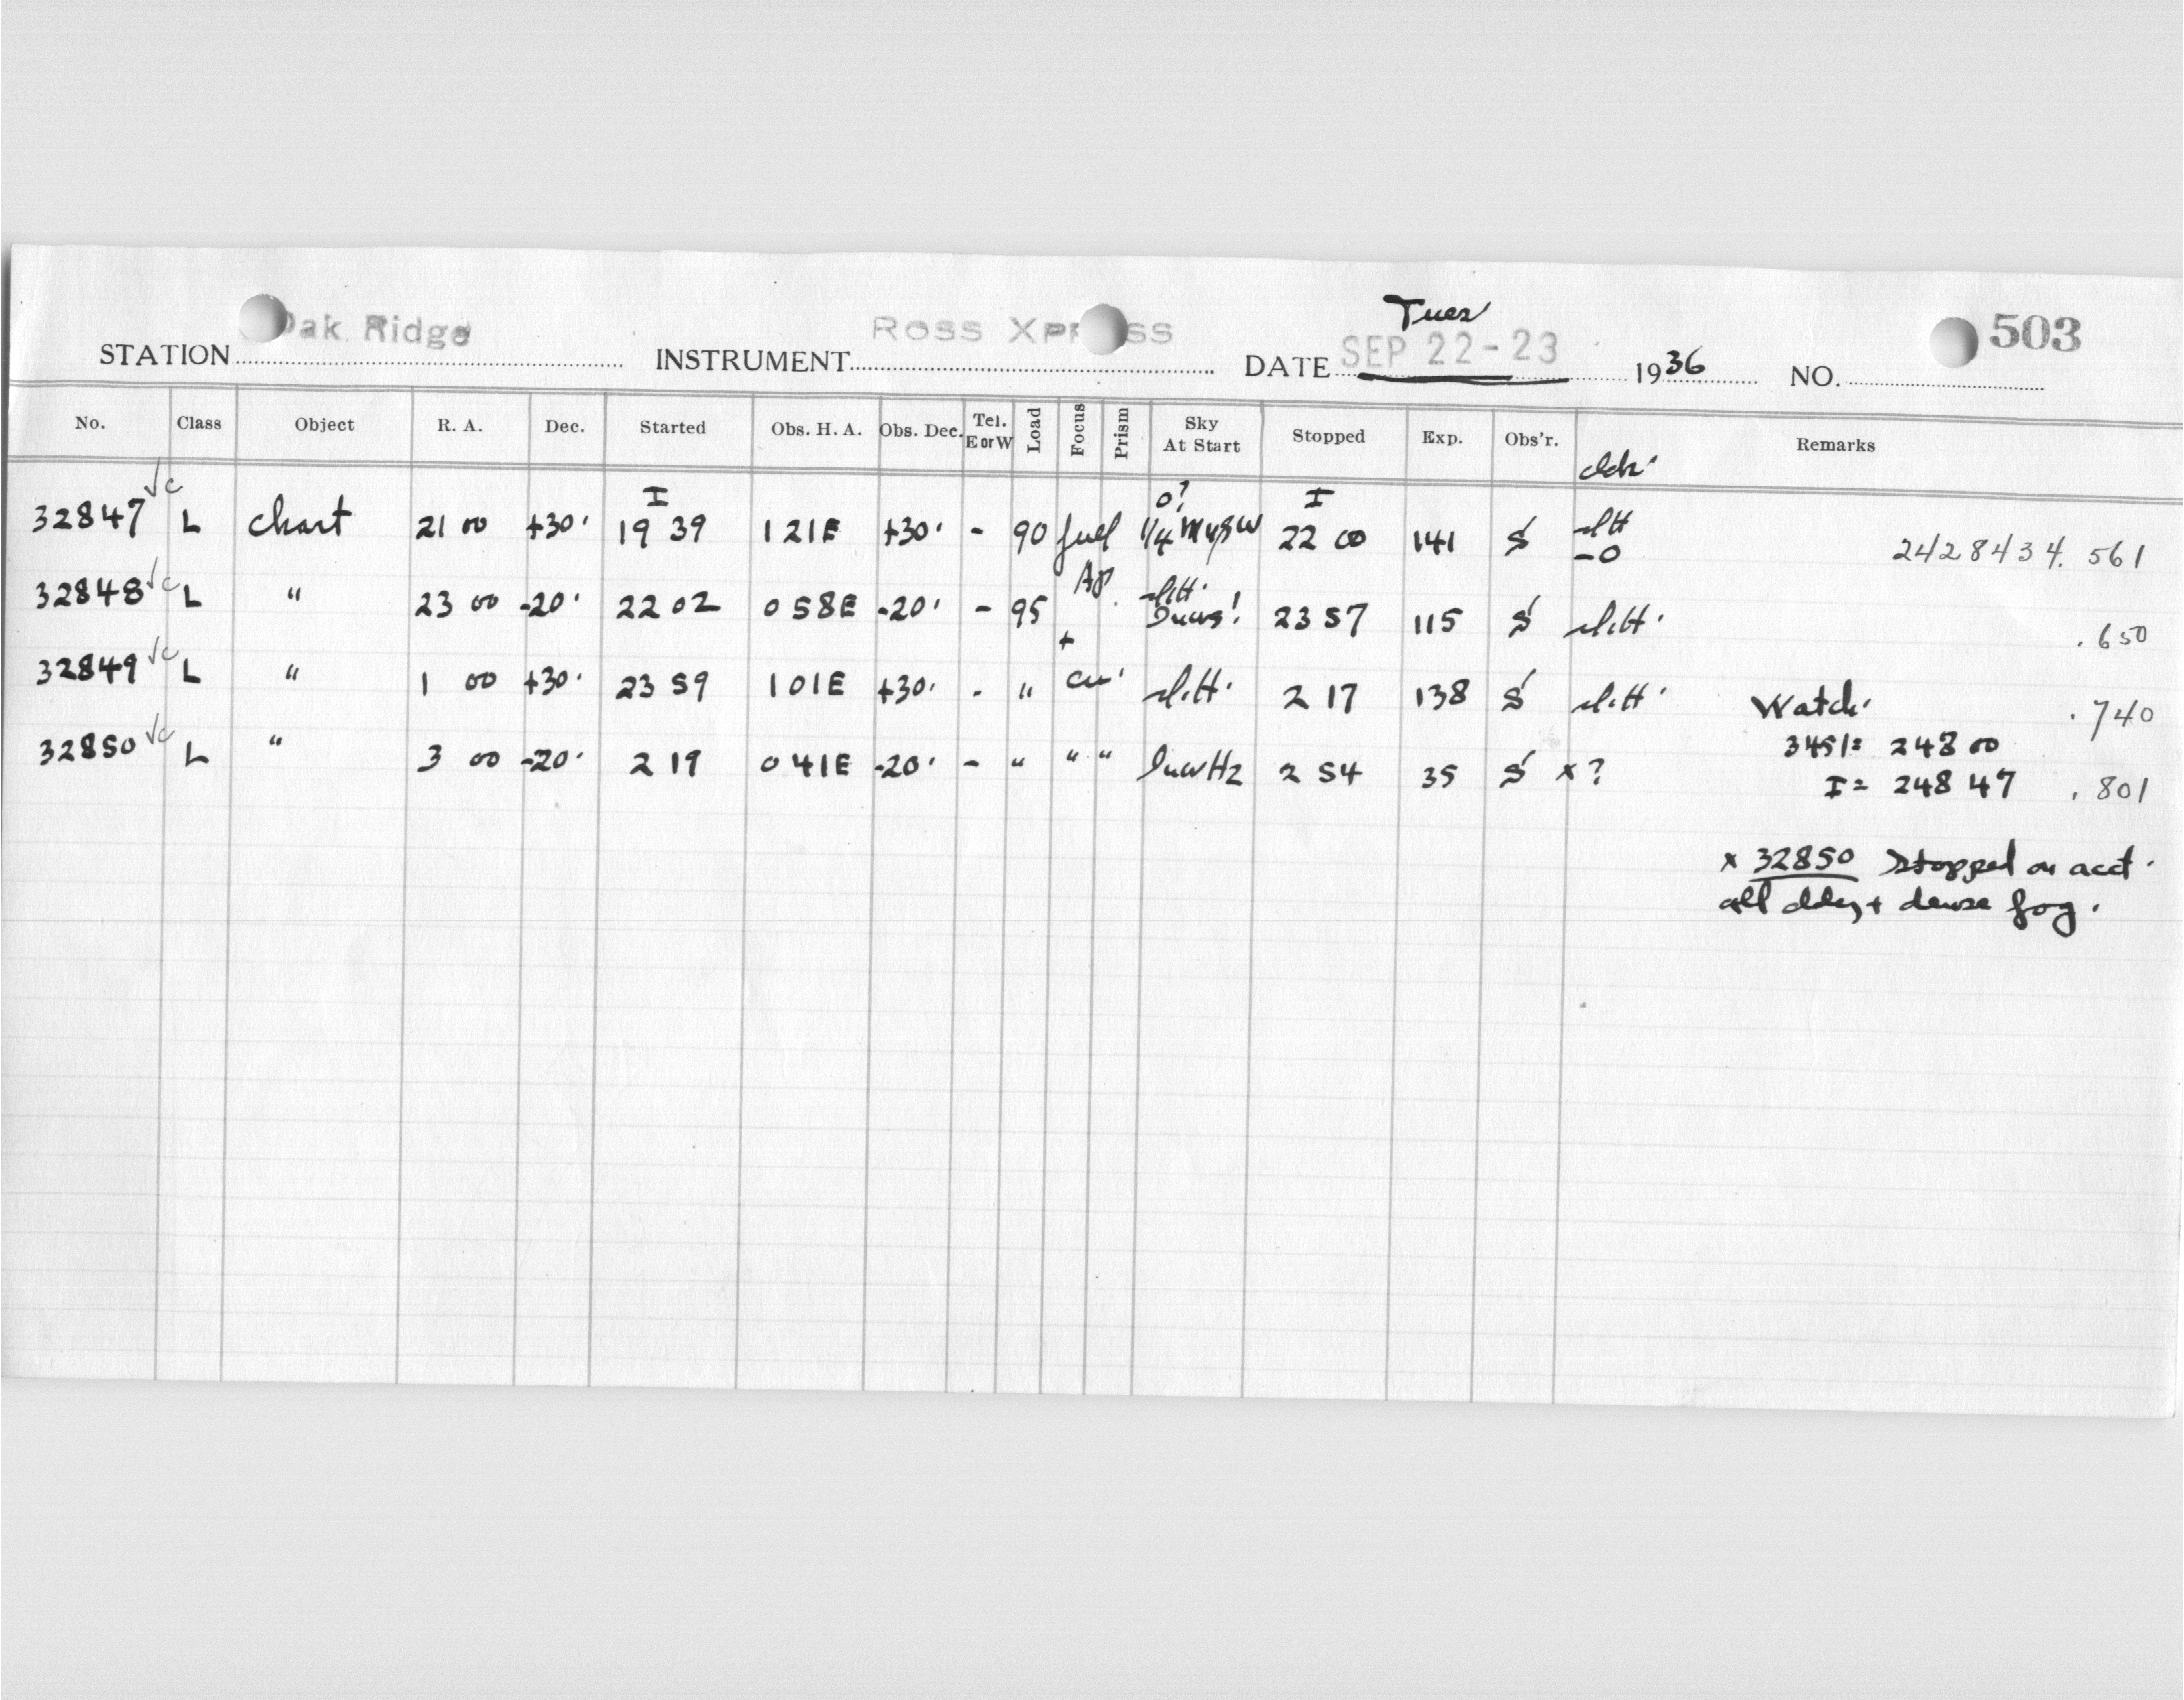 Tues
STATION Oak Ridge INSTRUMENT Ross Xpress DATE SEP 22-23 1936 NO. 503
No. Class Object R. A. Dec. Started Obs. H. A. Obs. Dec. Tel. E or W Load Focus Prism Sky At Start Stopped Exp. Obs'r. Remarks
I I
32847 √c L chart 21 00 +30' 19 39 1 21E +30' - 90 22 00 141 S 2428434.561
32848 √c L " 23 00 -20' 22 02 0 58E -20' - 95 23 57 115 S .650
32849 √c L " 1 00 +30' 23 59 1 01E +30' - " 2 17 138 S Watch. .740
3451= 248 00
32850 √c L " 3 00 -20' 2 19 0 41E -20' - " " " 2 54 35 S x? I = 248 47 .801
x 32850 Stopped on acct.
all cldy + dense fog.